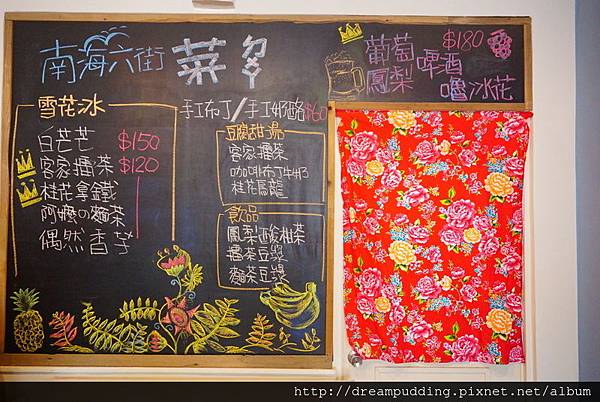 南海六街 菜ㄉㄢ
雪花冰
白芒芒 $150
客家擂茶 $120
桂花拿鐵
阿嬤の麵茶
偶然香芋
手工布丁/手工奶酪 $60
豆腐甜湯
客家擂茶
咖啡布丁牛奶
桂花烏龍
飲品
鳳梨酸柑茶
擂茶豆漿
麵茶豆漿
$180
葡萄
鳳梨
啤酒
嚕冰花
http://dreampudding.pixnet.net/album